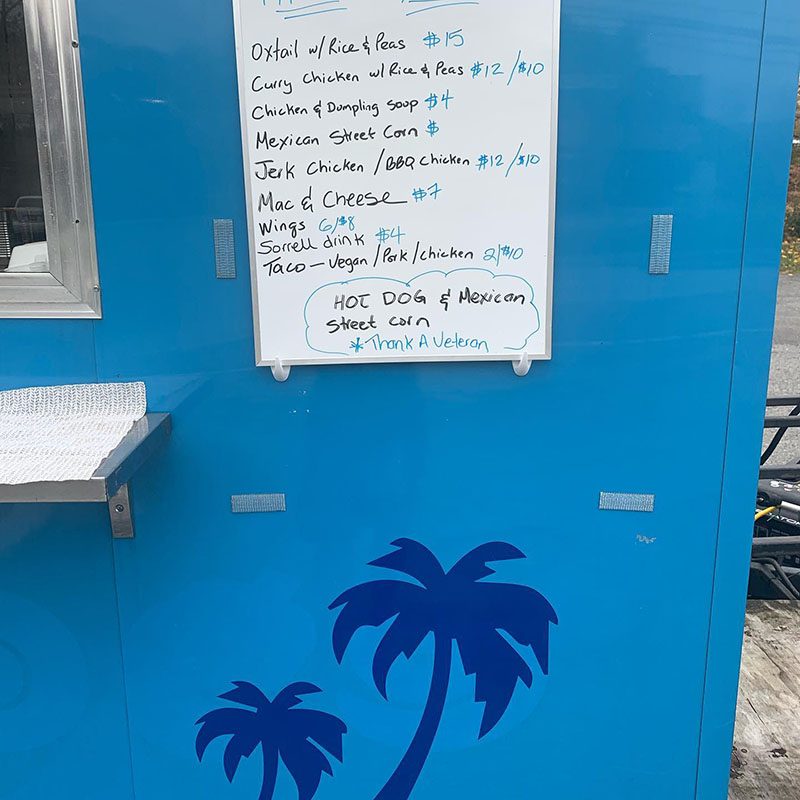 Oxtail w/ Rice & Peas $15
Curry Chicken w/ Rice & Peas $12/$10
Chicken & Dumpling Soup $4
Mexican Street Corn $
Jerk Chicken / BBQ Chicken $12/$10
Mac & Cheese $7
Wings 6/$8
Sorrell drink $4
Taco - Vegan / Pork / Chicken 2/$10
HOT DOG & Mexican
Street corn
* Thank A Veteran